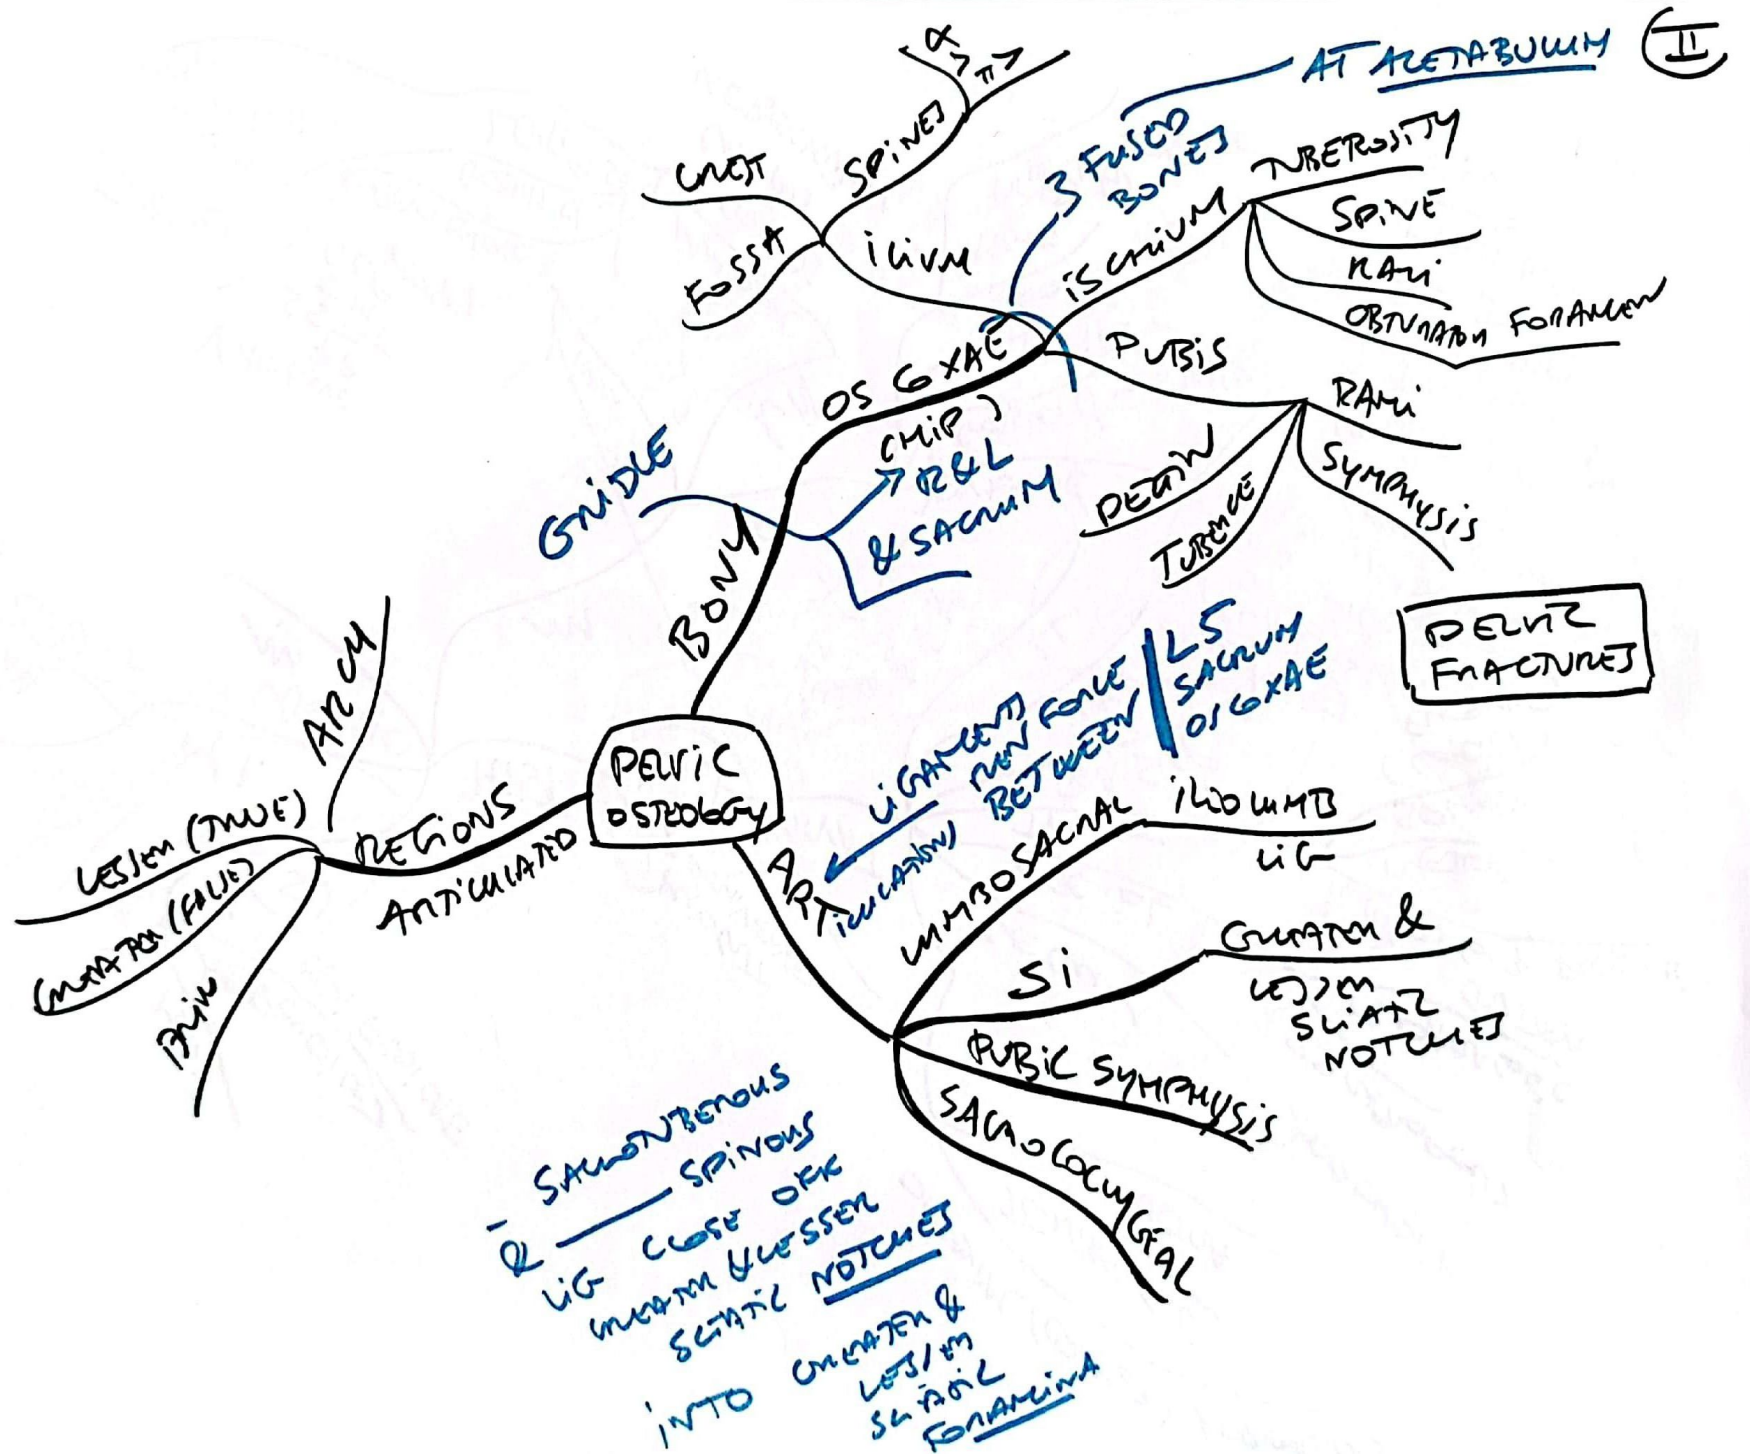 II
AT ACETABULUM
3 FUSED
BONES
SPINES
CREST
FOSSA
ILIUM
ISCHIUM
TUBEROSITY
SPINE
RAMI
OBTURATOR FORAMEN
PUBIS
RAMI
SYMPHYSIS
PECTIN
TUBERCLE
OS COXAE
(HIP)
R&L
& SACRUM
GIRDLE
BONY
PELVIC
FRACTURES
PELVIC
OSTEOLOGY
REGIONS
ARTICULATED
ARCH
LESSER (TRUE)
GREATER (FALSE)
BRIM
ARTICULATIONS
LIGAMENTS
FORCE
BETWEEN
L5
SACRUM
OS COXAE
LUMBOSACRAL
ILIOLUMB
LIG
SI
GREATER &
LESSER
SCIATIC
NOTCHES
PUBIC SYMPHYSIS
SACROCOCCYGEAL
SACROTUBEROUS
& SPINOUS
LIG CLOSE OFF
GREATER & LESSER
SCIATIC NOTCHES
INTO GREATER &
LESSER
SCIATIC
FORAMINA